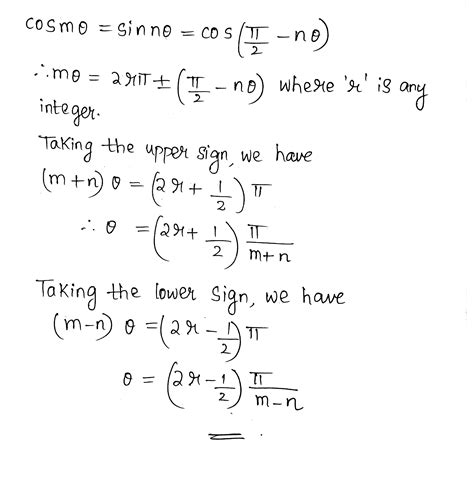 cosmθ = sin nθ = cos(π/2 − nθ)
∴mθ = 2rπ ± (π/2 − nθ) where 'r' is any
integer.
Taking the upper sign, we have
(m+n) θ = (2r + 1/2) π
∴ θ = (2r + 1/2) π/m+n
Taking the lower sign, we have
(m−n) θ = (2r − 1/2) π
θ = (2r − 1/2) π/m−n